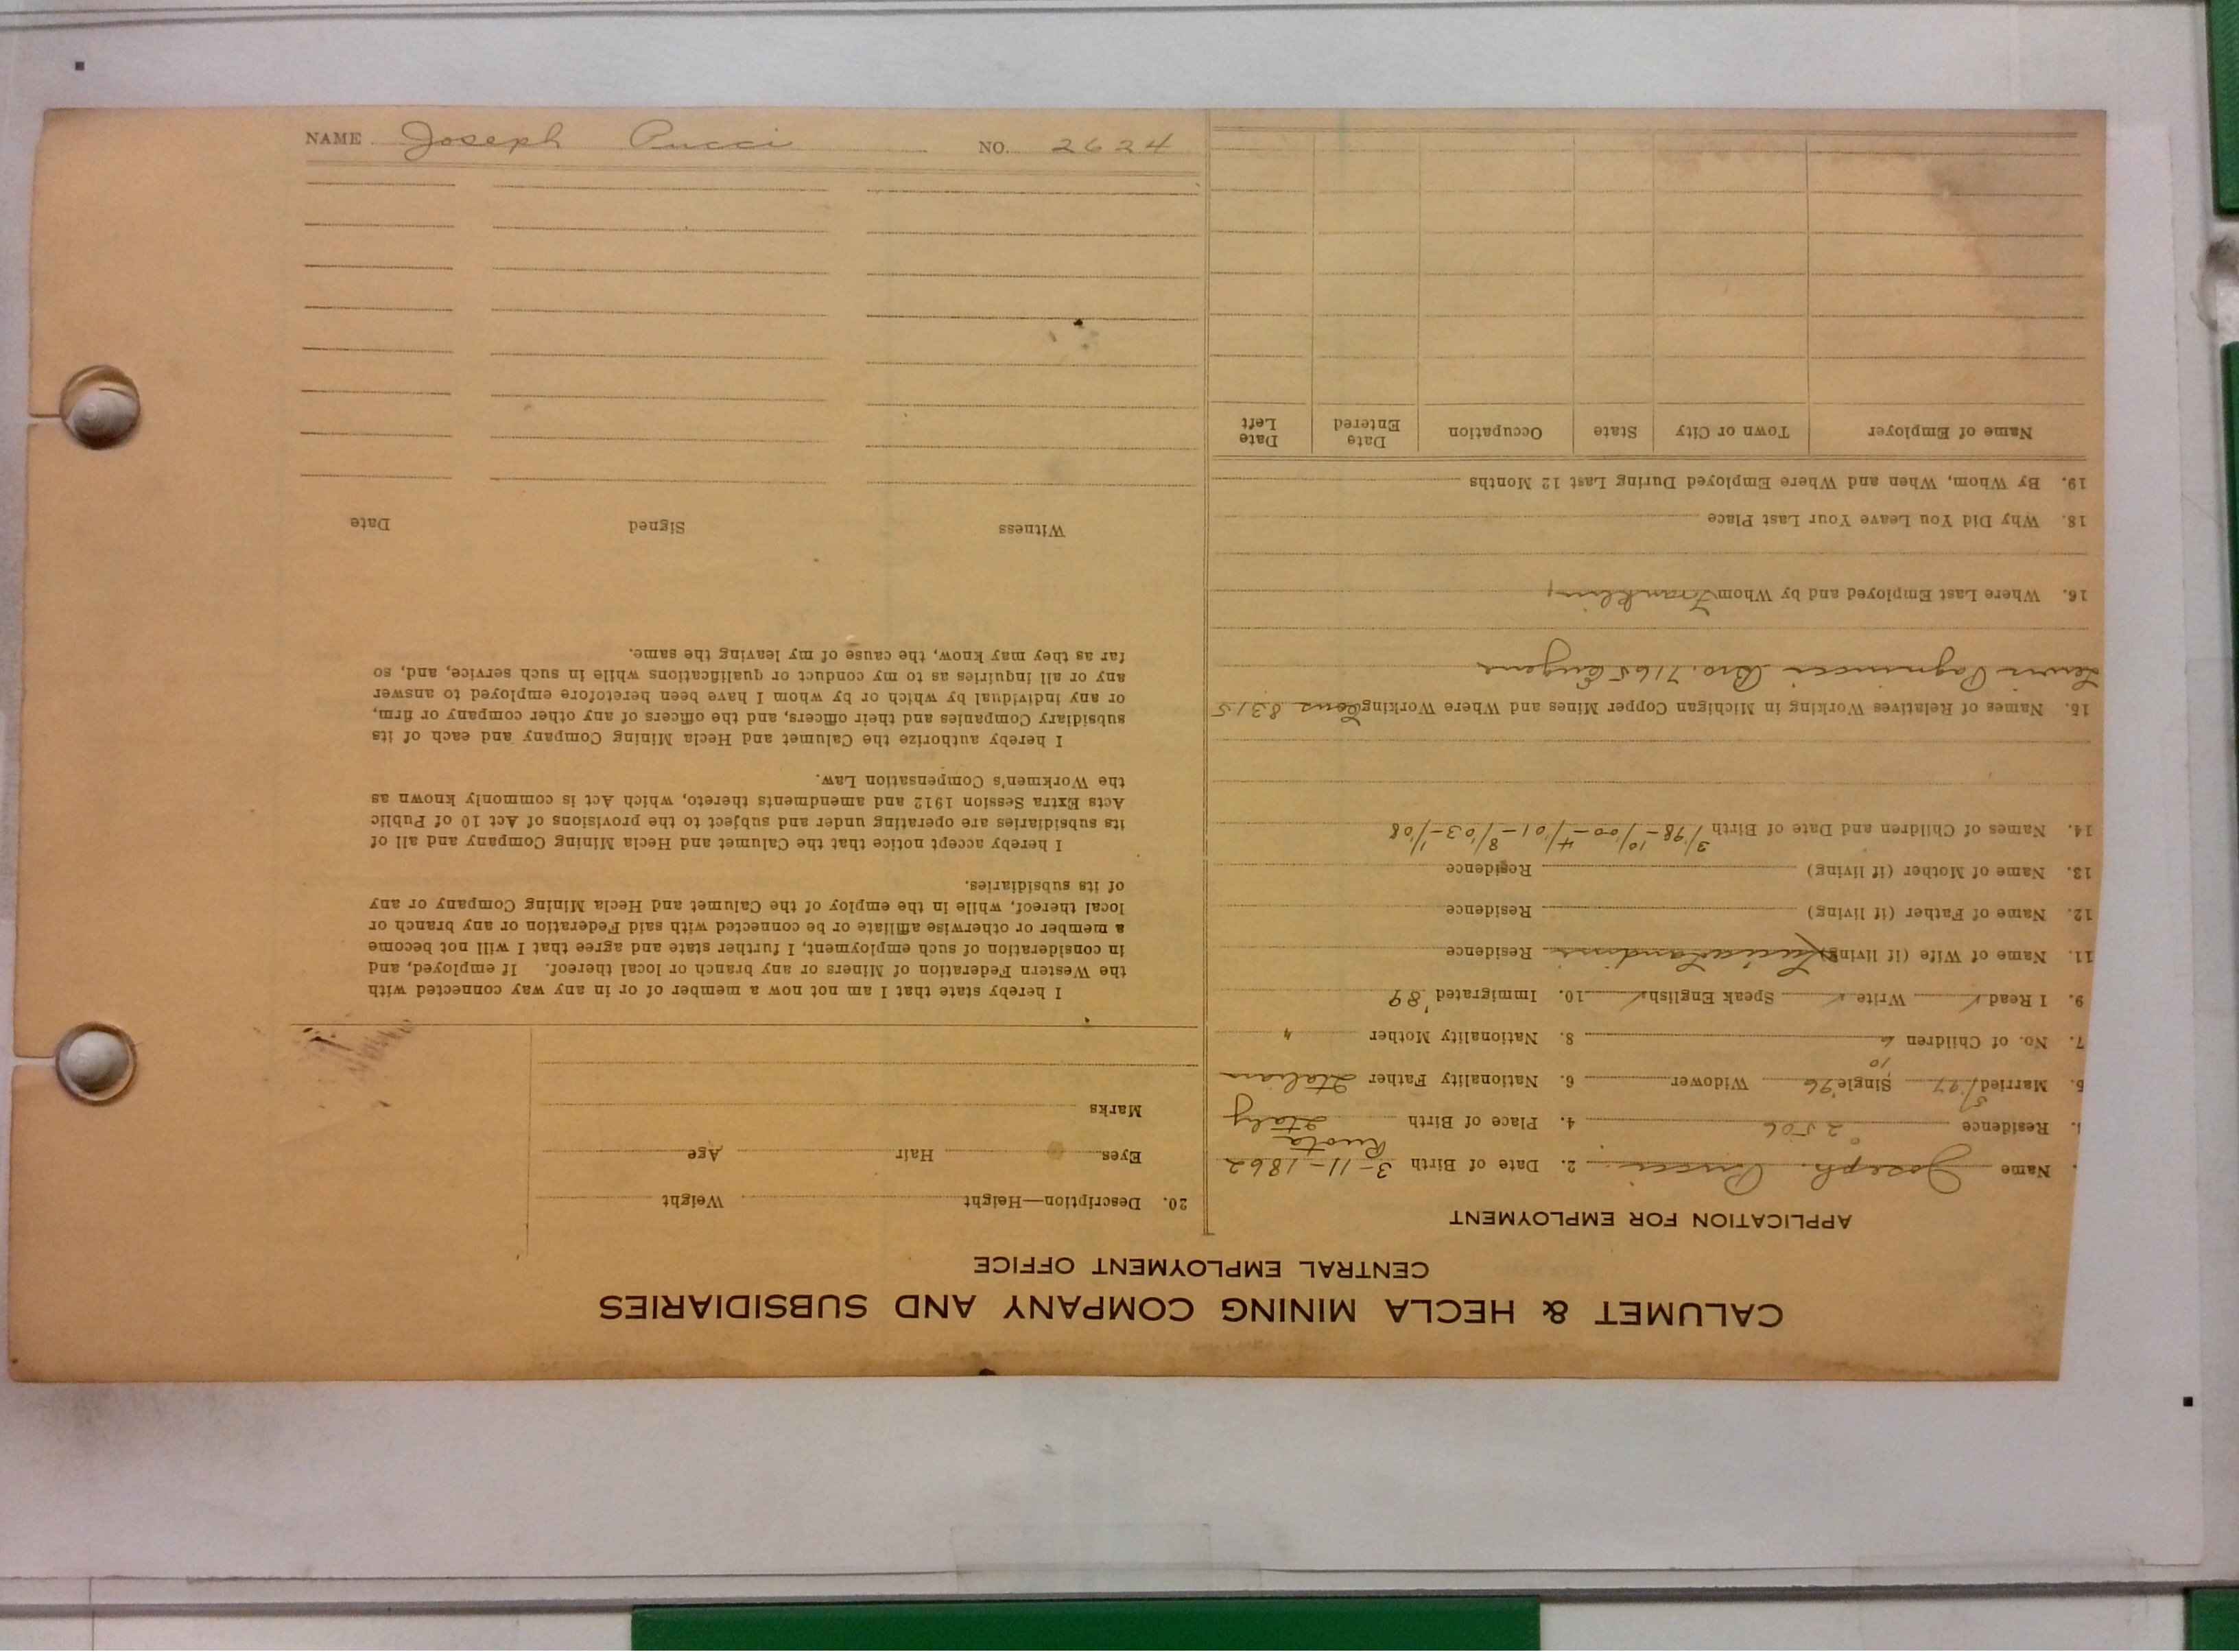 NAME Joseph Pucci NO. 2624
CALUMET & HECLA MINING COMPANY AND SUBSIDIARIES
CENTRAL EMPLOYMENT OFFICE
APPLICATION FOR EMPLOYMENT
Name Joseph Pucci 2. Date of Birth 3-11-1862
Residence 2506 4. Place of Birth Italy
5. Married 5/97 Single 10/96 Widower 6. Nationality Father Italian
7. No. of Children 6 8. Nationality Mother "
9. I Read ✓ Write ✓ Speak English ✓ 10. Immigrated '89
11. Name of Wife (if living) Residence
12. Name of Father (if living) Residence
13. Name of Mother (if living) Residence
14. Names of Children and Date of Birth 3/98-10/00-4/01-8/03-1/08
15. Names of Relatives Working in Michigan Copper Mines and Where Working Sons 8315
Bro. 7165 Eugene
16. Where Last Employed and by Whom Franklin
18. Why Did You Leave Your Last Place
19. By Whom, When and Where Employed During Last 12 Months
Name of Employer Town or City State Occupation Date Entered Date Left
20. Description—Height Weight
Eyes Hair Age
Marks
I hereby state that I am not now a member of or in any way connected with
the Western Federation of Miners or any branch or local thereof. If employed, and
in consideration of such employment, I further state and agree that I will not become
a member or otherwise affiliate or be connected with said Federation or any branch or
local thereof, while in the employ of the Calumet and Hecla Mining Company or any
of its subsidiaries.
I hereby accept notice that the Calumet and Hecla Mining Company and all of
its subsidiaries are operating under and subject to the provisions of Act 10 of Public
Acts Extra Session 1912 and amendments thereto, which Act is commonly known as
the Workmen's Compensation Law.
I hereby authorize the Calumet and Hecla Mining Company and each of its
subsidiary Companies and their officers, and the officers of any other company or firm,
or any individual by which or by whom I have been heretofore employed to answer
any or all inquiries as to my conduct or qualifications while in such service, and, so
far as they may know, the cause of my leaving the same.
Witness Signed Date